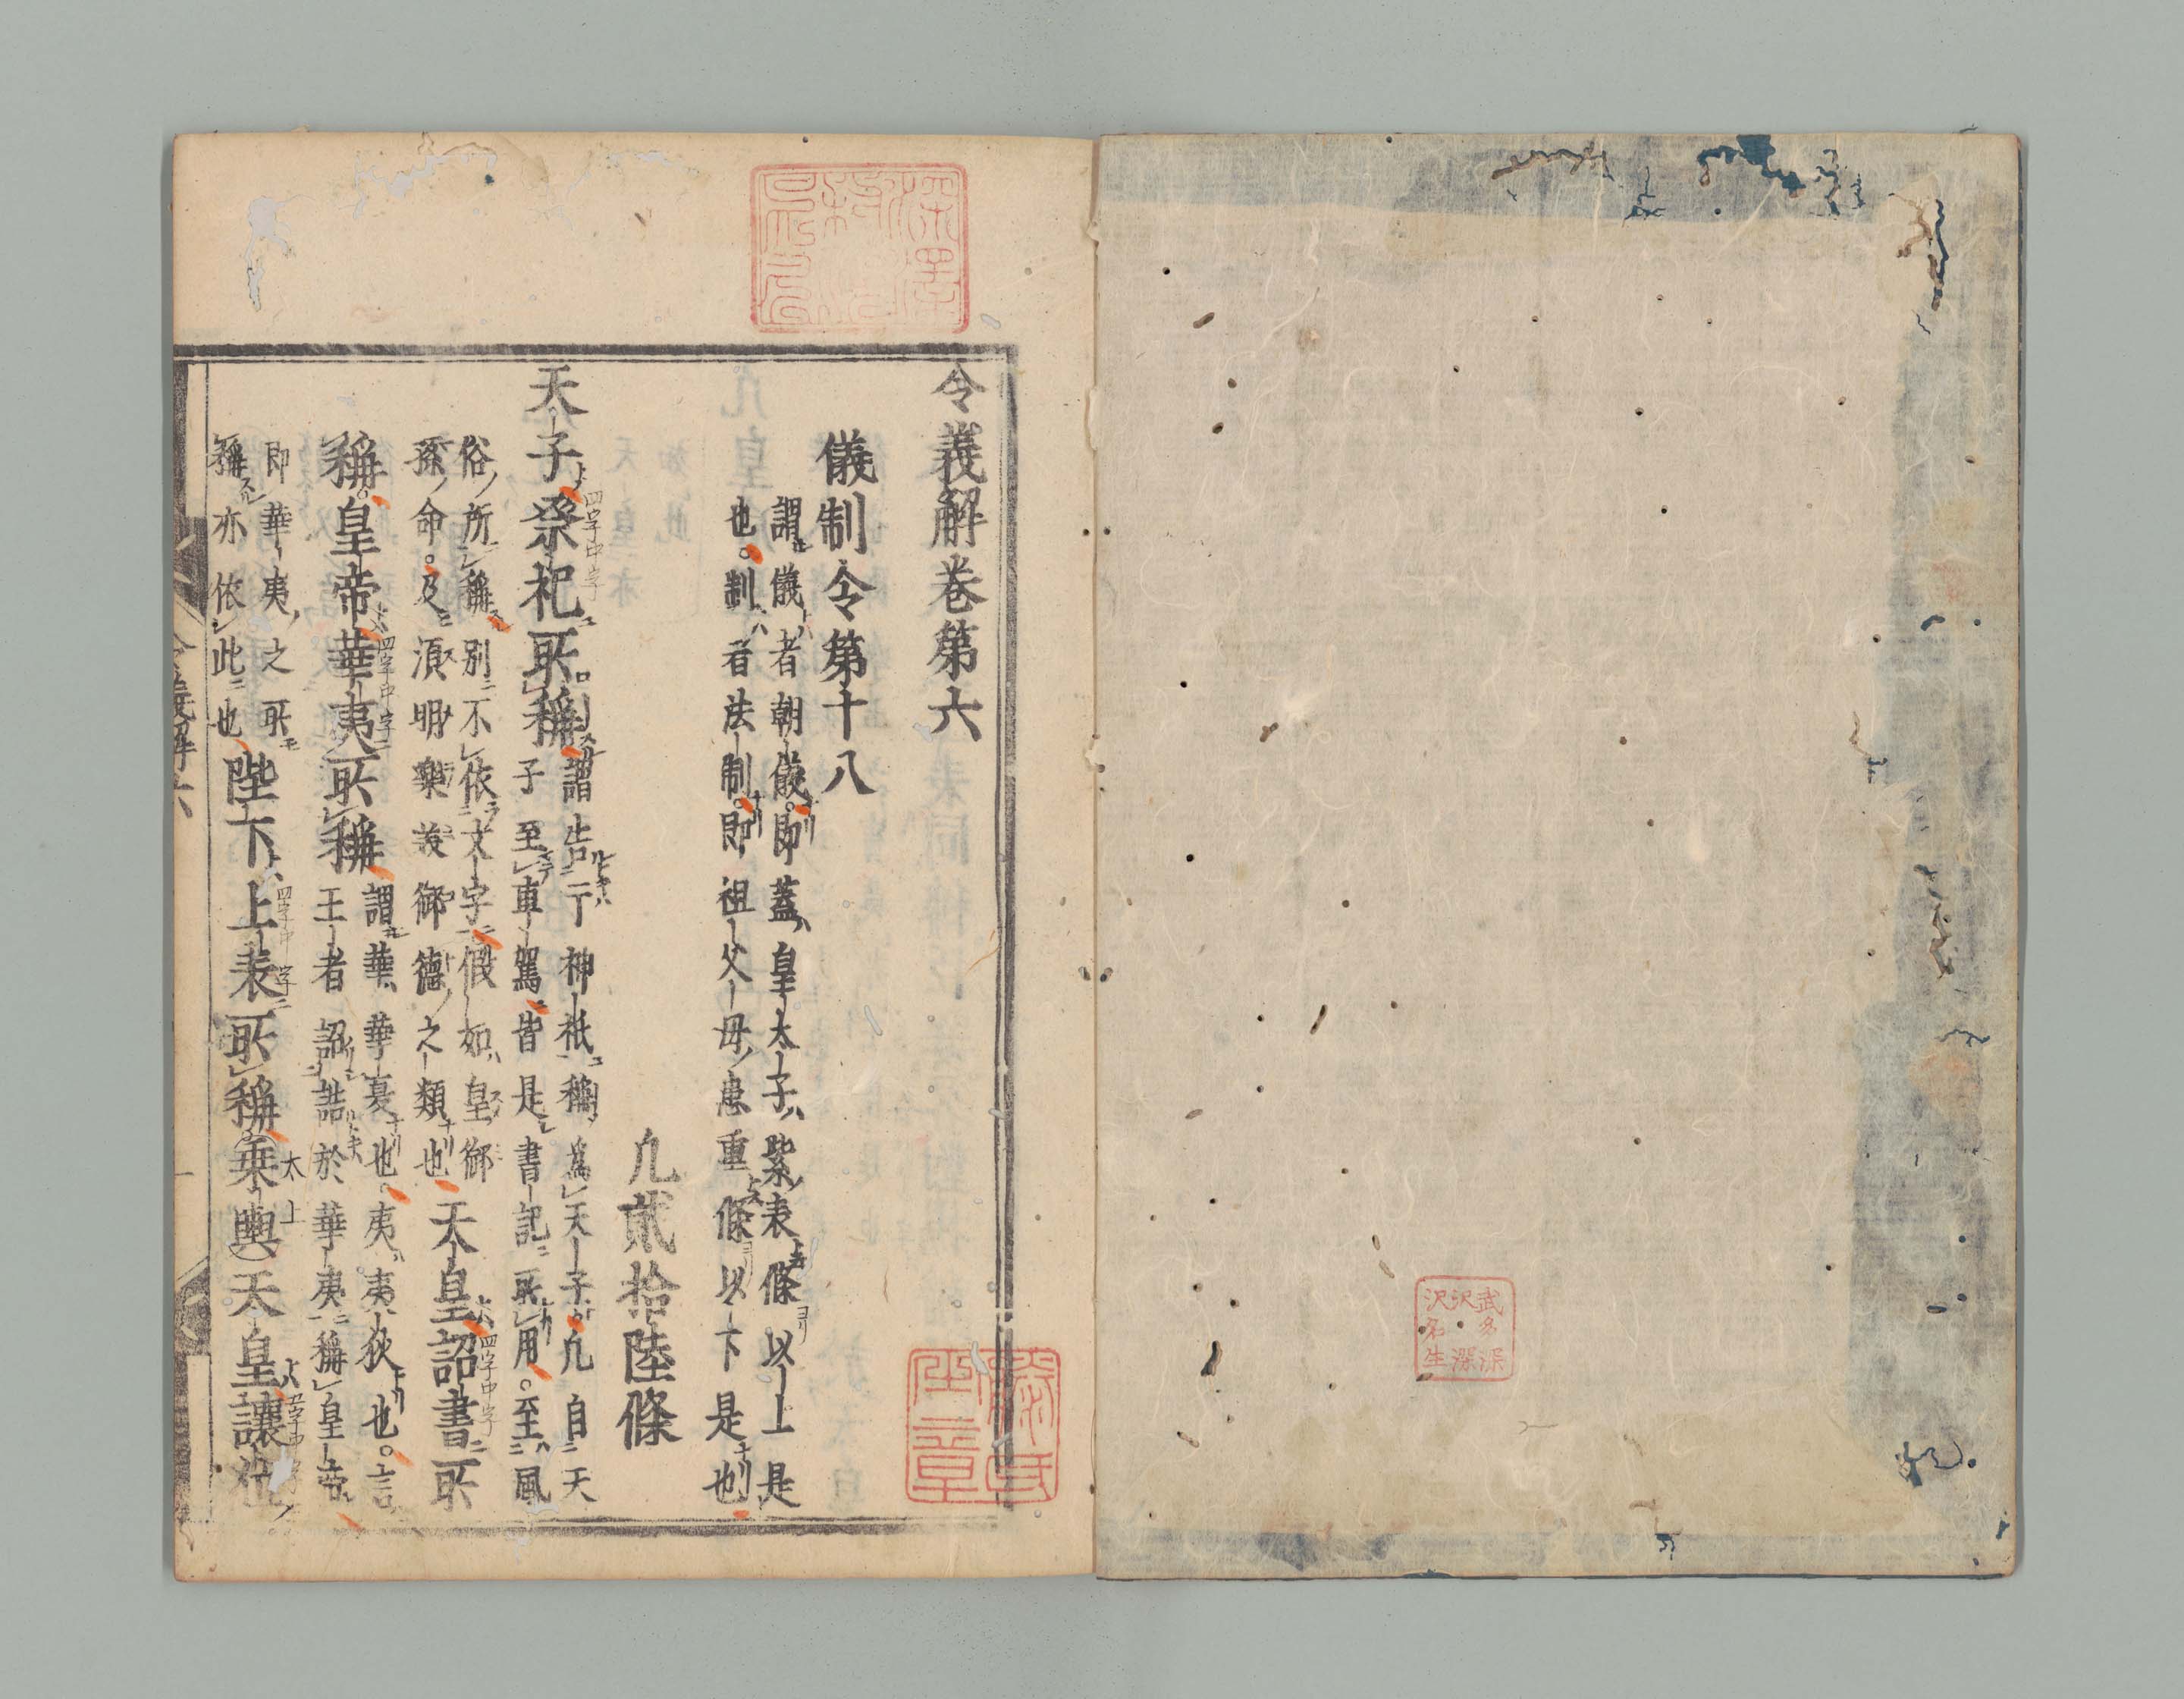 令義解巻第六
儀制令第十八
謂儀者朝儀即蓋皇太子紫表條以上是
也制者法制即祖父母患重條以下是也
凡貳拾陸條
天子祭祀所稱謂告于神祇稱爲天子凡自天
子至車駕皆是書記所用至風
俗所稱別不依文字假如皇御
孫命及須明樂美御德之類也天皇詔書所
稱皇帝華夷所稱謂華華夏也夷夷狄也言
王者詔誥於華夷稱皇帝
即華夷之所
稱亦依此也陛下上表所稱乗輿天皇讓位
太上
四字中字
四字中字
四字中字
四字中字
五字中字
令義解六